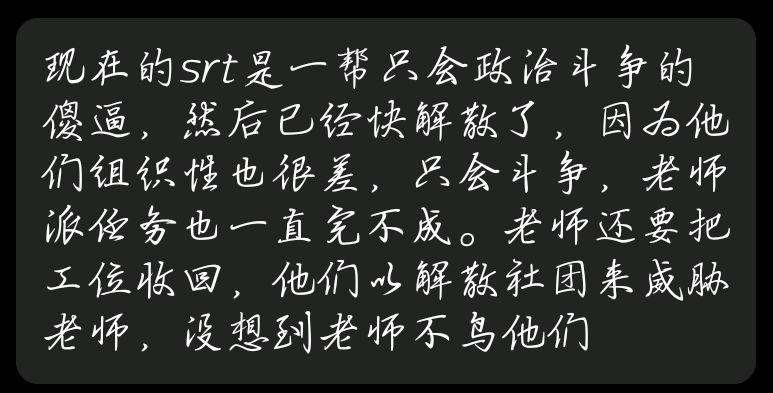 现在的srt是一帮只会政治斗争的
傻逼，然后已经快解散了，因为他
们组织性也很差，只会斗争，老师
派任务也一直完不成。老师还要把
工位收回，他们以解散社团来威胁
老师，没想到老师不鸟他们